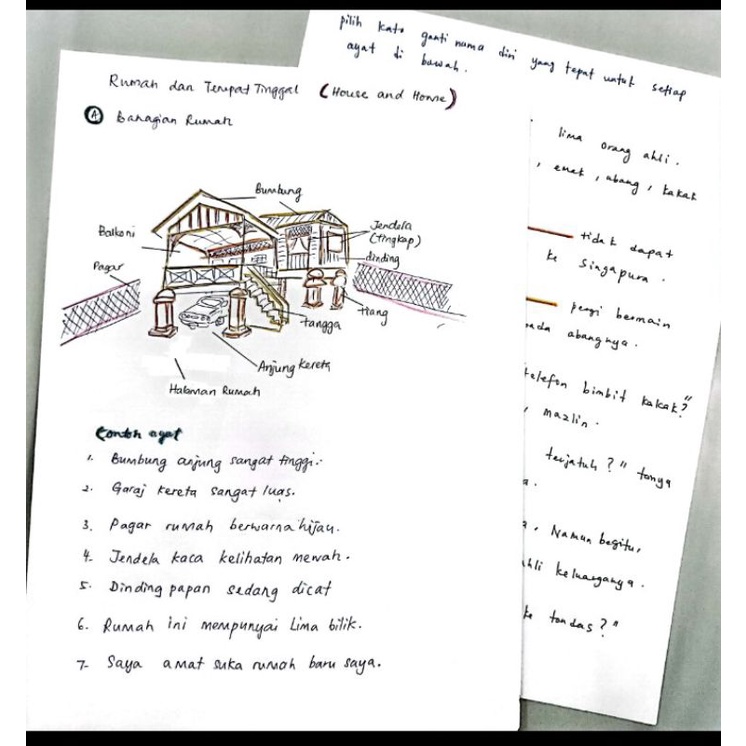 Rumah dan Tempat Tinggal (House and Home)
A Bahagian Rumah
Bumbung
Balkoni
Jendela
(tingkap)
dinding
Pagar
tiang
tangga
Anjung kereta
Halaman Rumah
Contoh ayat
1. Bumbung anjung sangat tinggi.
2. Garaj kereta sangat luas.
3. Pagar rumah berwarna hijau.
4. Jendela kaca kelihatan mewah.
5. Dinding papan sedang dicat
6. Rumah ini mempunyai Lima bilik.
7. Saya amat suka rumah baru saya.
pilih kata ganti nama diri yang tepat untuk setiap
ayat di bawah.
lima orang ahli.
, emak, abang, kakak
tidak dapat
ke Singapura.
pergi bermain
abangnya.
telefon bimbit kakak?"
, mazlin.
terjatuh?" tanya
. Namun begitu,
keluarganya.
ke tandas?"